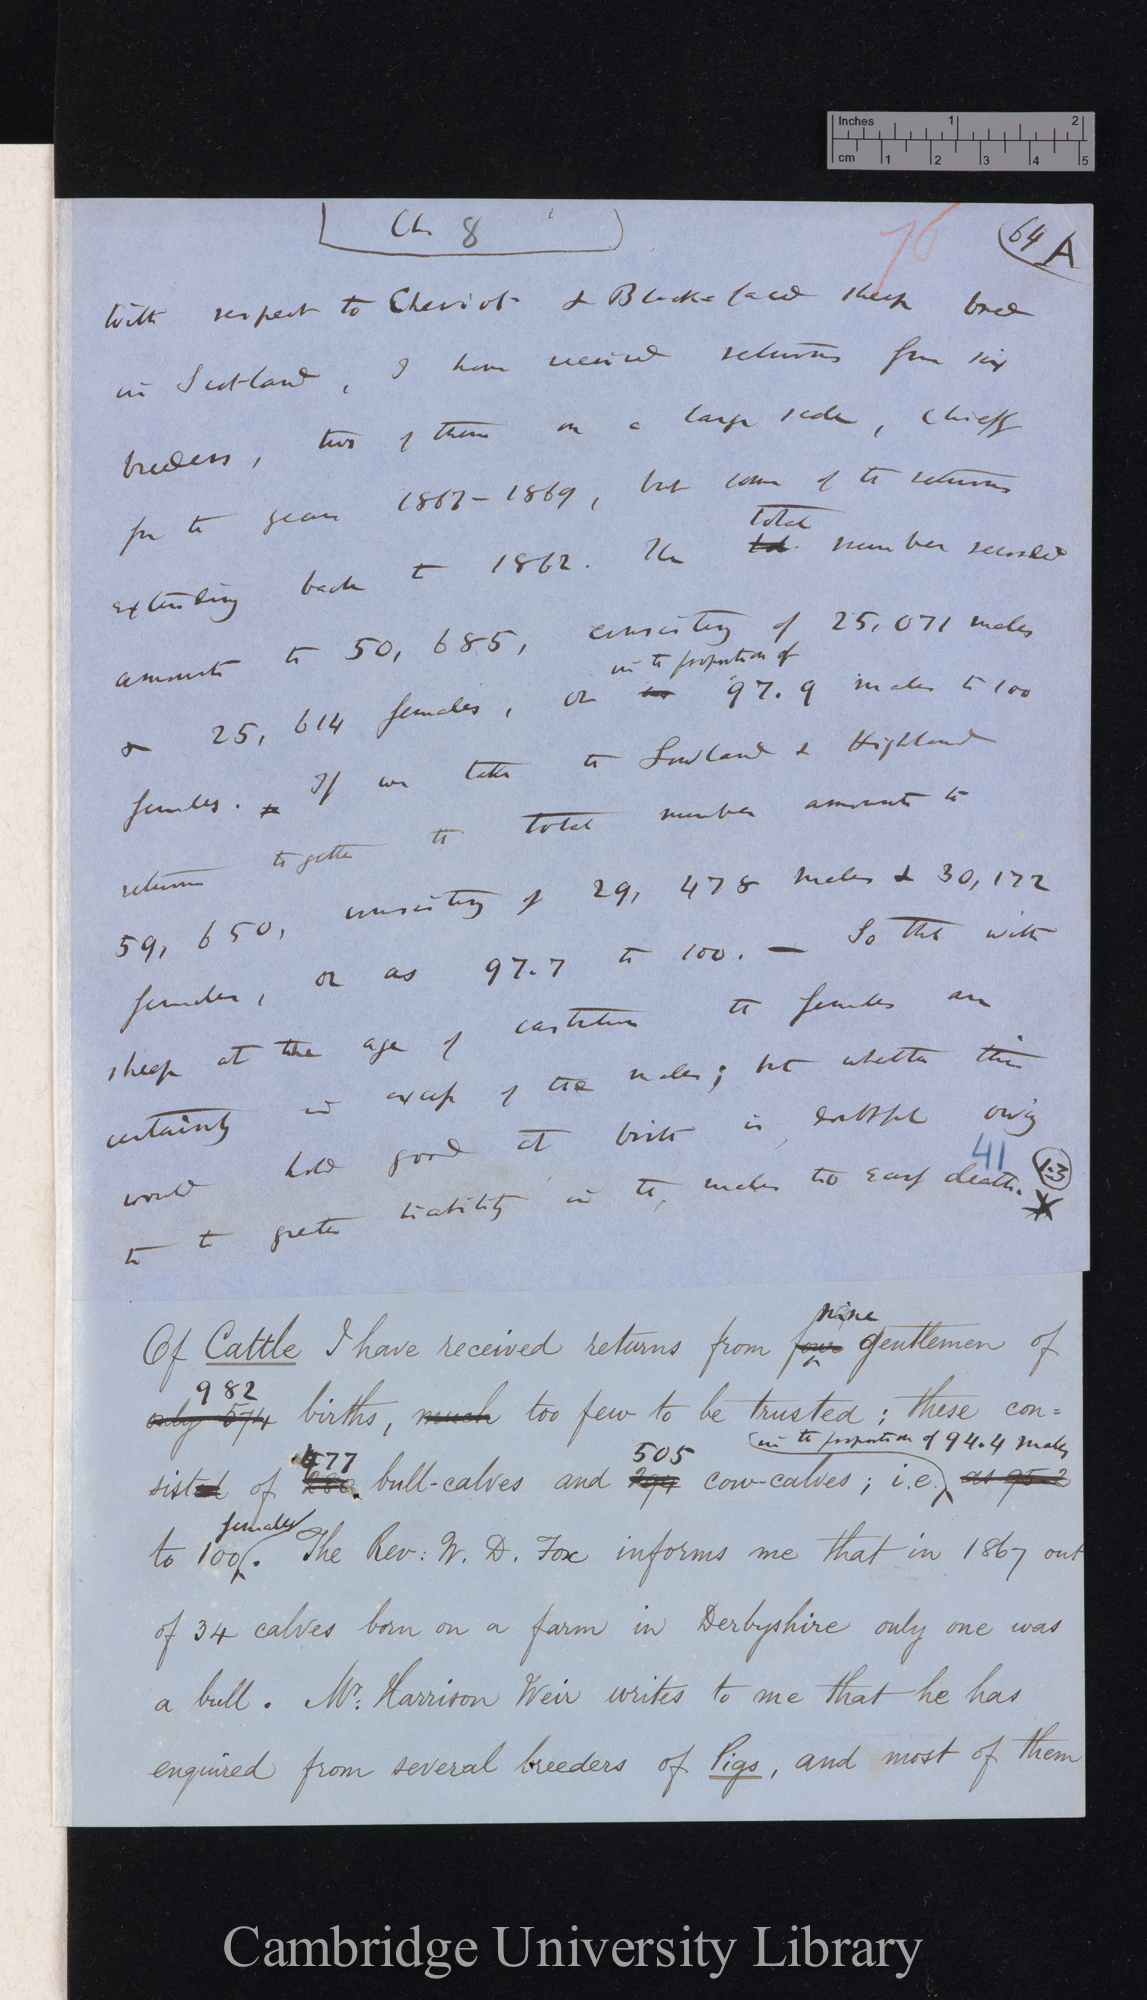 Inches 1 2
cm 1 2 3 4 5
Ch. 8
76
64 A
With respect to Cheviots & Black-faced sheep bred
in Scotland, I have received returns from six
breeders, two of them on a large scale, chiefly
for the years 1867-1869, but some of the returns
extending back to 1862. The total number recorded
amounts to 50,685, consisting of 25,071 males
& 25,614 females, or in the proportion of 97.9 males to 100
females. If we take the Lowland & Highland
returns together the total number amounts to
59,650, consisting of 29,478 males & 30,172
females, or as 97.7 to 100. — So that with
sheep at the age of castration the females are
certainly in excess of the males; but whether this
would hold good at birth is doubtful owing
41 (1.3)
to the greater liability in the males to early death.
Of Cattle I have received returns from four nine gentlemen of
only 574 982 births, much too few to be trusted; these con=
sisted of 477 bull-calves and 294 505 cow-calves; i.e. in the proportion of 94.4 males as 95.2
to 100 females. The Rev: W. D. Fox informs me that in 1867 out
of 34 calves born on a farm in Derbyshire only one was
a bull. Mr: Harrison Weir writes to me that he has
enquired from several breeders of Pigs, and most of them
Cambridge University Library